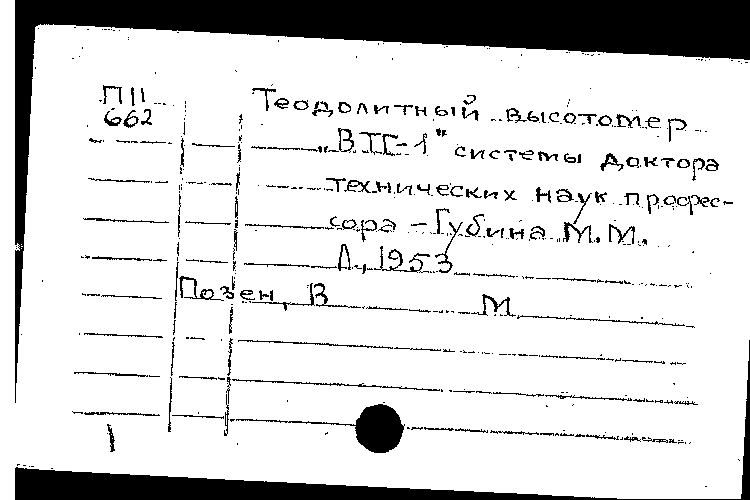 П11
662
Теодолитный высотомер
„ВТГ-1" системы доктора
технических наук профес-
сора - Губина М.М.
Л., 1953
Позен, В М
1